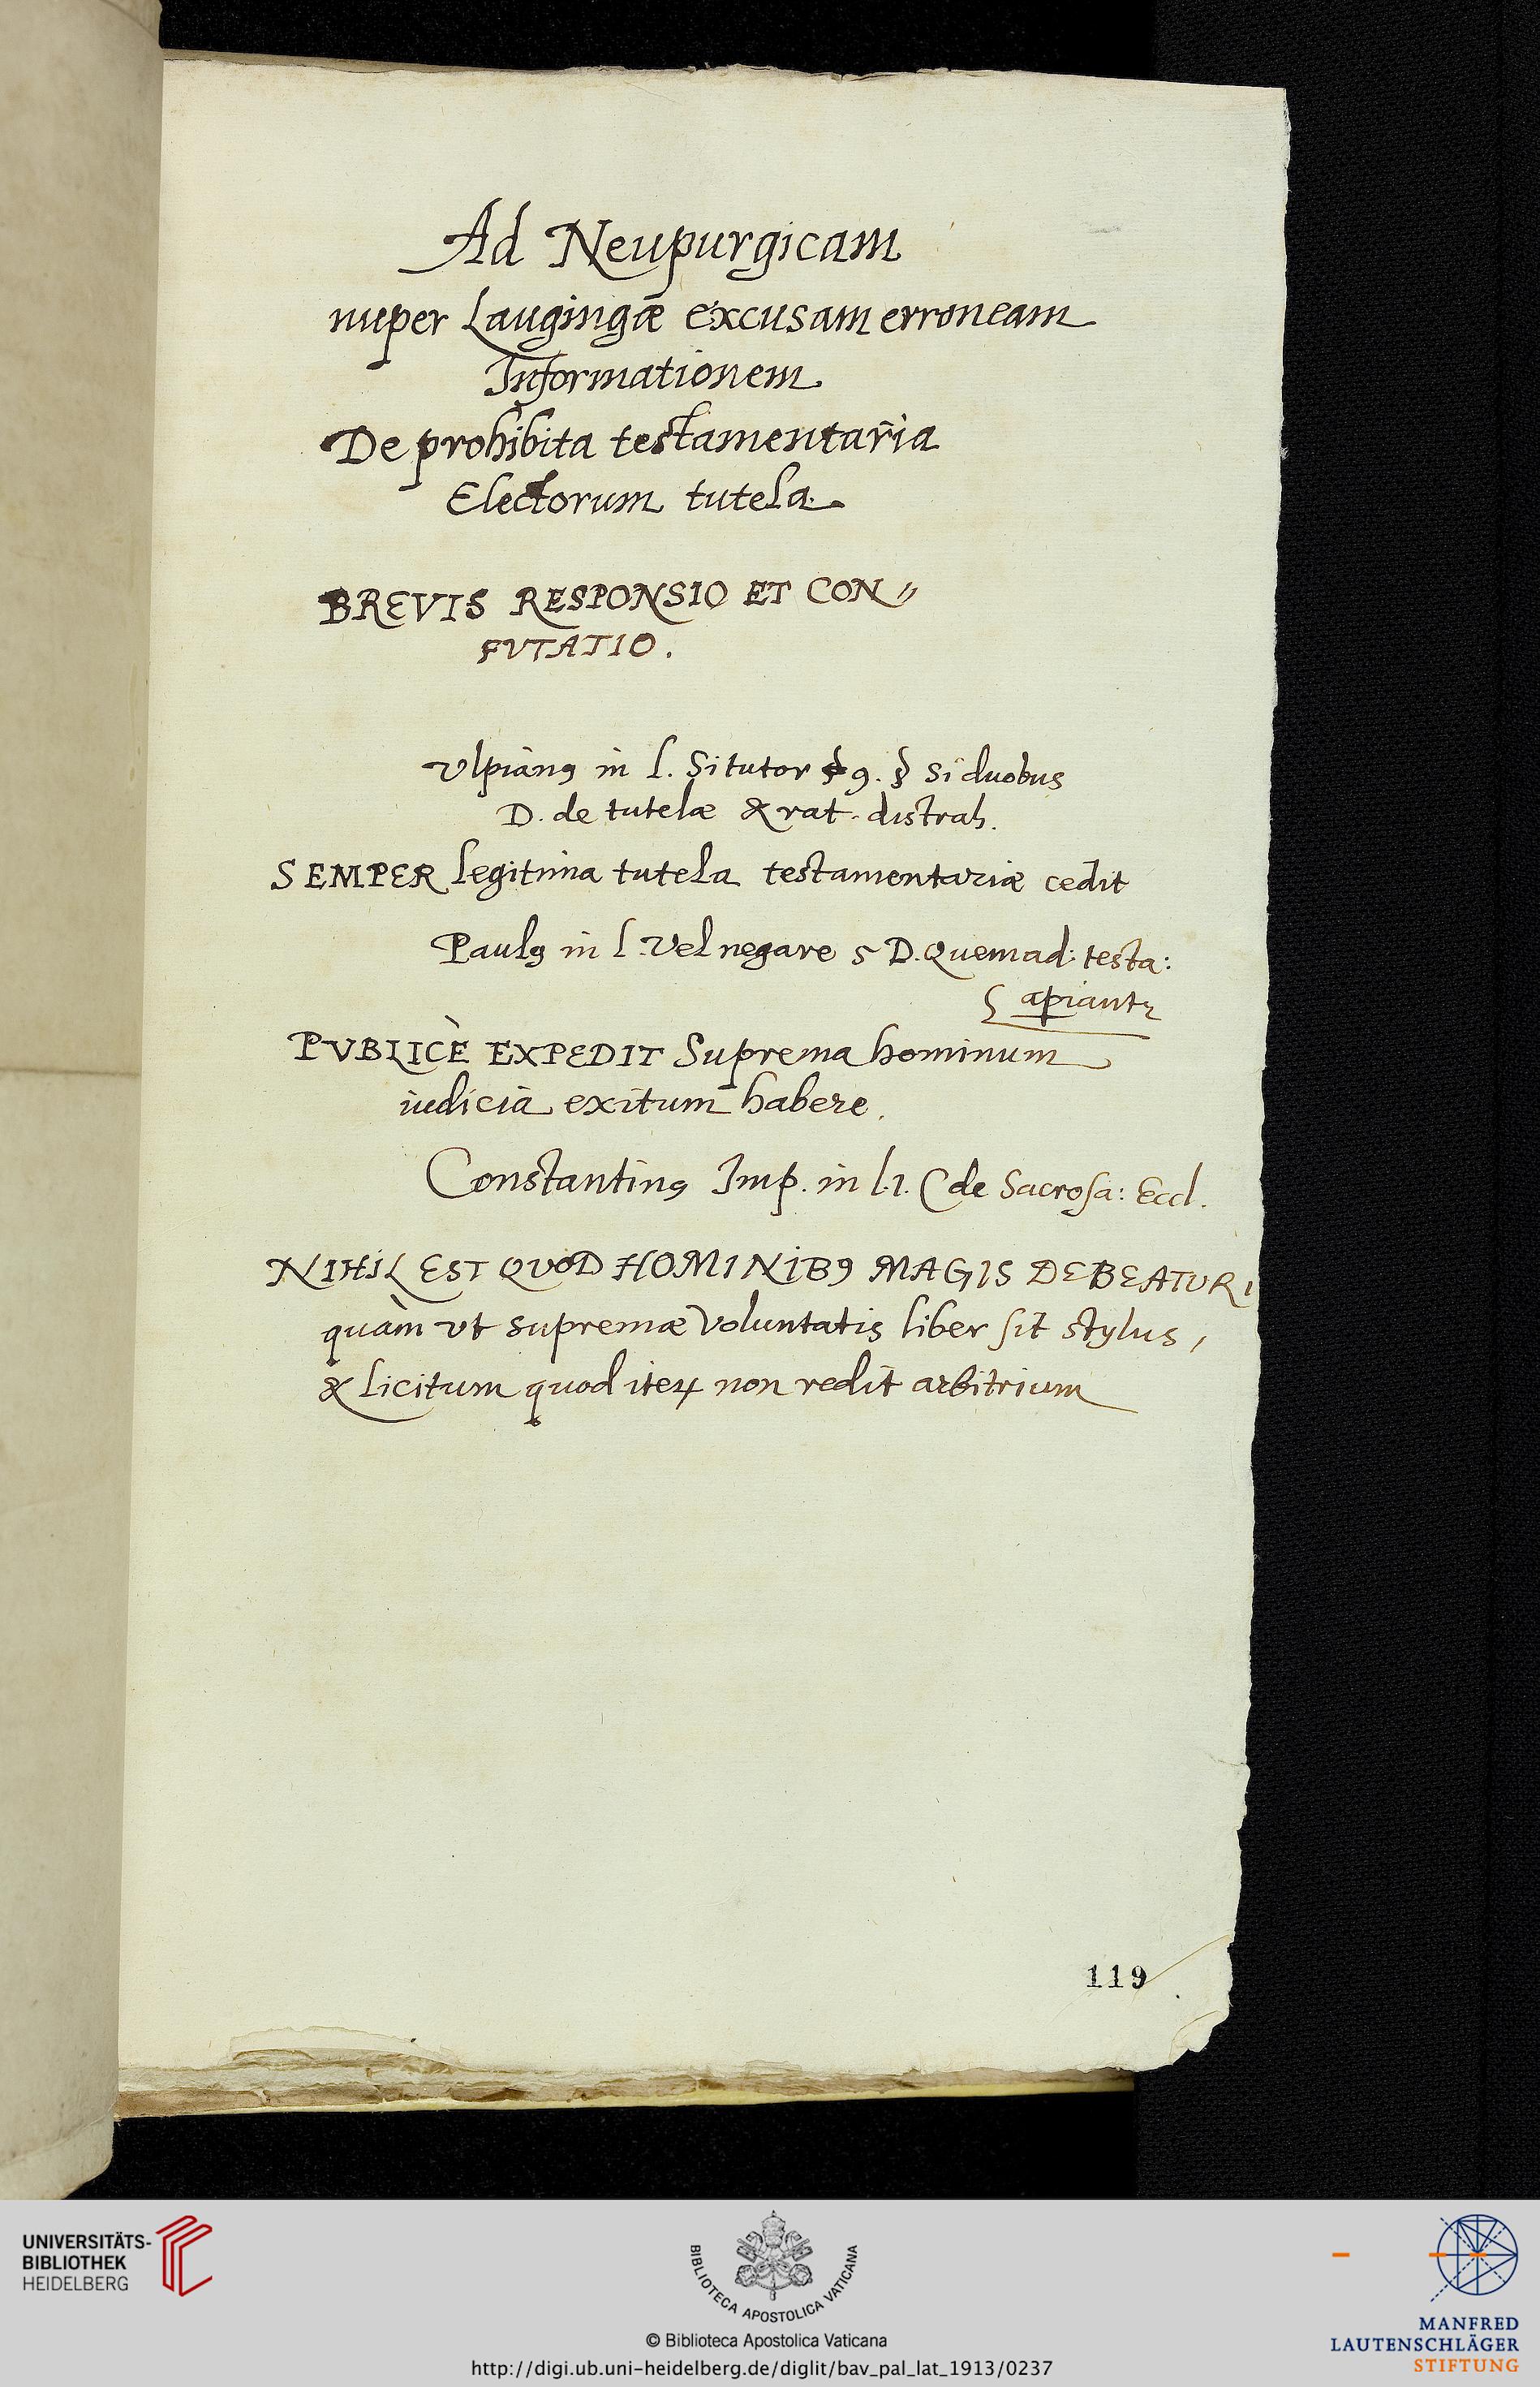 Ad Neupurgicam
nuper Laugingæ excusam erroneam
Informationem
De prohibita testamentaria
Electorum tutela.
BREVIS RESPONSIO ET CON〃
FVTATIO.
Ulpianꝰ in l. Si tutor 9. § Si duobus
D. de tutelæ & rat. distrah.
SEMPER legitima tutela testamentariæ cedit
Paulꝰ in l. Vel negare 5 D. Quemad: testa:
apiantr
PVBLICÈ EXPEDIT Suprema hominum
iudicia exitum habere.
Constantinꝰ Imp. in l. 1. C de Sacrosa: Eccl.
NIHIL EST QVOD HOMINIBꝰ MAGIS DEBEATUR,
quàm vt supremæ voluntatis liber sit stylus,
& licitum quod iteꝝ non redit arbitrium
119
UNIVERSITÄTS-
BIBLIOTHEK
HEIDELBERG
BIBLIOTECA APOSTOLICA VATICANA
© Biblioteca Apostolica Vaticana
http://digi.ub.uni-heidelberg.de/diglit/bav_pal_lat_1913/0237
MANFRED
LAUTENSCHLÄGER
STIFTUNG